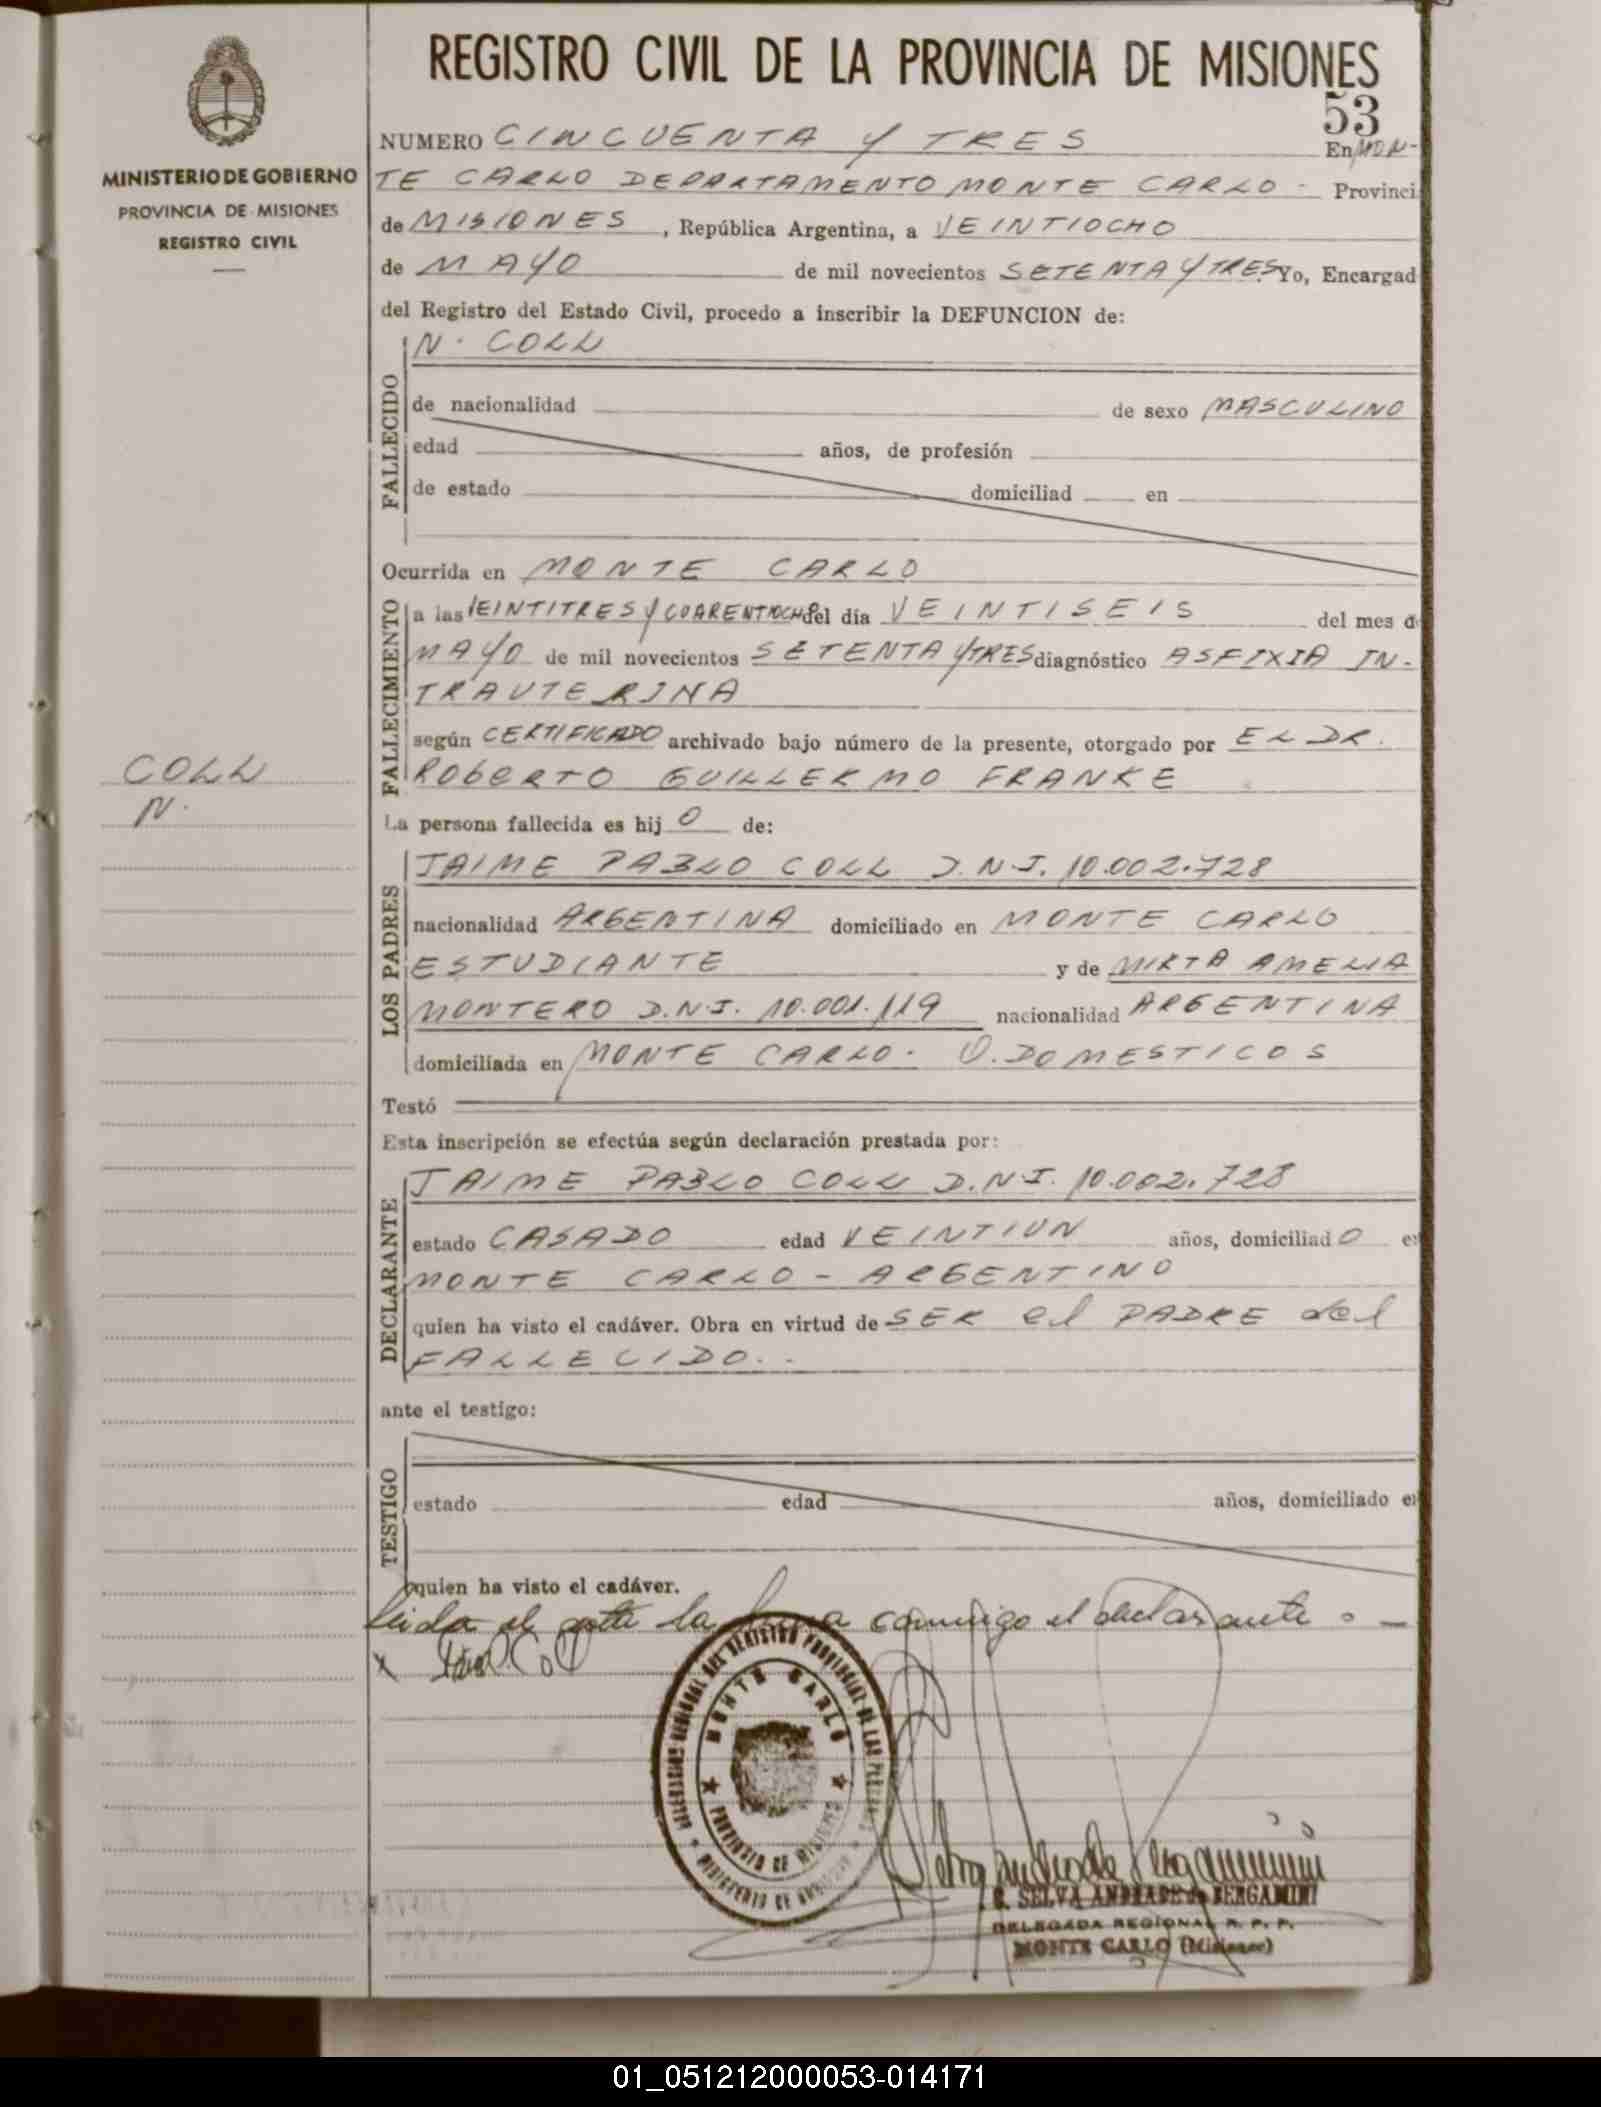 REGISTRO CIVIL DE LA PROVINCIA DE MISIONES
53
MINISTERIO DE GOBIERNO
PROVINCIA DE MISIONES
REGISTRO CIVIL
NUMERO CINCUENTA Y TRES En MON-
TE CARLO DEPARTAMENTO MONTE CARLO - Provinci
de MISIONES, República Argentina, a VEINTIOCHO
de MAYO de mil novecientos SETENTA Y TRES. Yo, Encargad
del Registro del Estado Civil, procedo a inscribir la DEFUNCION de:
FALLECIDO
N. COLL
de nacionalidad de sexo MASCULINO
edad años, de profesión
de estado domiciliad en
Ocurrida en MONTE CARLO
FALLECIMIENTO
a las VEINTITRES Y CUARENTIOCHO del día VEINTISEIS del mes d
MAYO de mil novecientos SETENTA Y TRES diagnóstico ASFIXIA IN-
TRAUTERINA
según CERTIFICADO archivado bajo número de la presente, otorgado por EL DR.
ROBERTO GUILLERMO FRANKE
COLL
N.
La persona fallecida es hij O de:
LOS PADRES
JAIME PABLO COLL D.N.I. 10.002.728
nacionalidad ARGENTINA domiciliado en MONTE CARLO
ESTUDIANTE y de MIRTA AMELIA
MONTERO D.N.I. 10.001.119 nacionalidad ARGENTINA
domiciliada en MONTE CARLO. Q. DOMESTICOS
Testó
Esta inscripción se efectúa según declaración prestada por:
DECLARANTE
JAIME PABLO COLL D.N.I. 10.002.728
estado CASADO edad VEINTIUN años, domiciliad O e
MONTE CARLO - ARGENTINO
quien ha visto el cadáver. Obra en virtud de SER el PADRE del
FALLECIDO..
ante el testigo:
TESTIGO
estado edad años, domiciliado e
quien ha visto el cadáver.
Leida el acta la firma conmigo el declarante. -
x Coll
MONTE CARLO
PROVINCIA DE MISIONES
SELVA ANDRADE de BERGAMINI
DELEGADA REGIONAL R. P. P.
MONTE CARLO (Misiones)
01_051212000053-014171